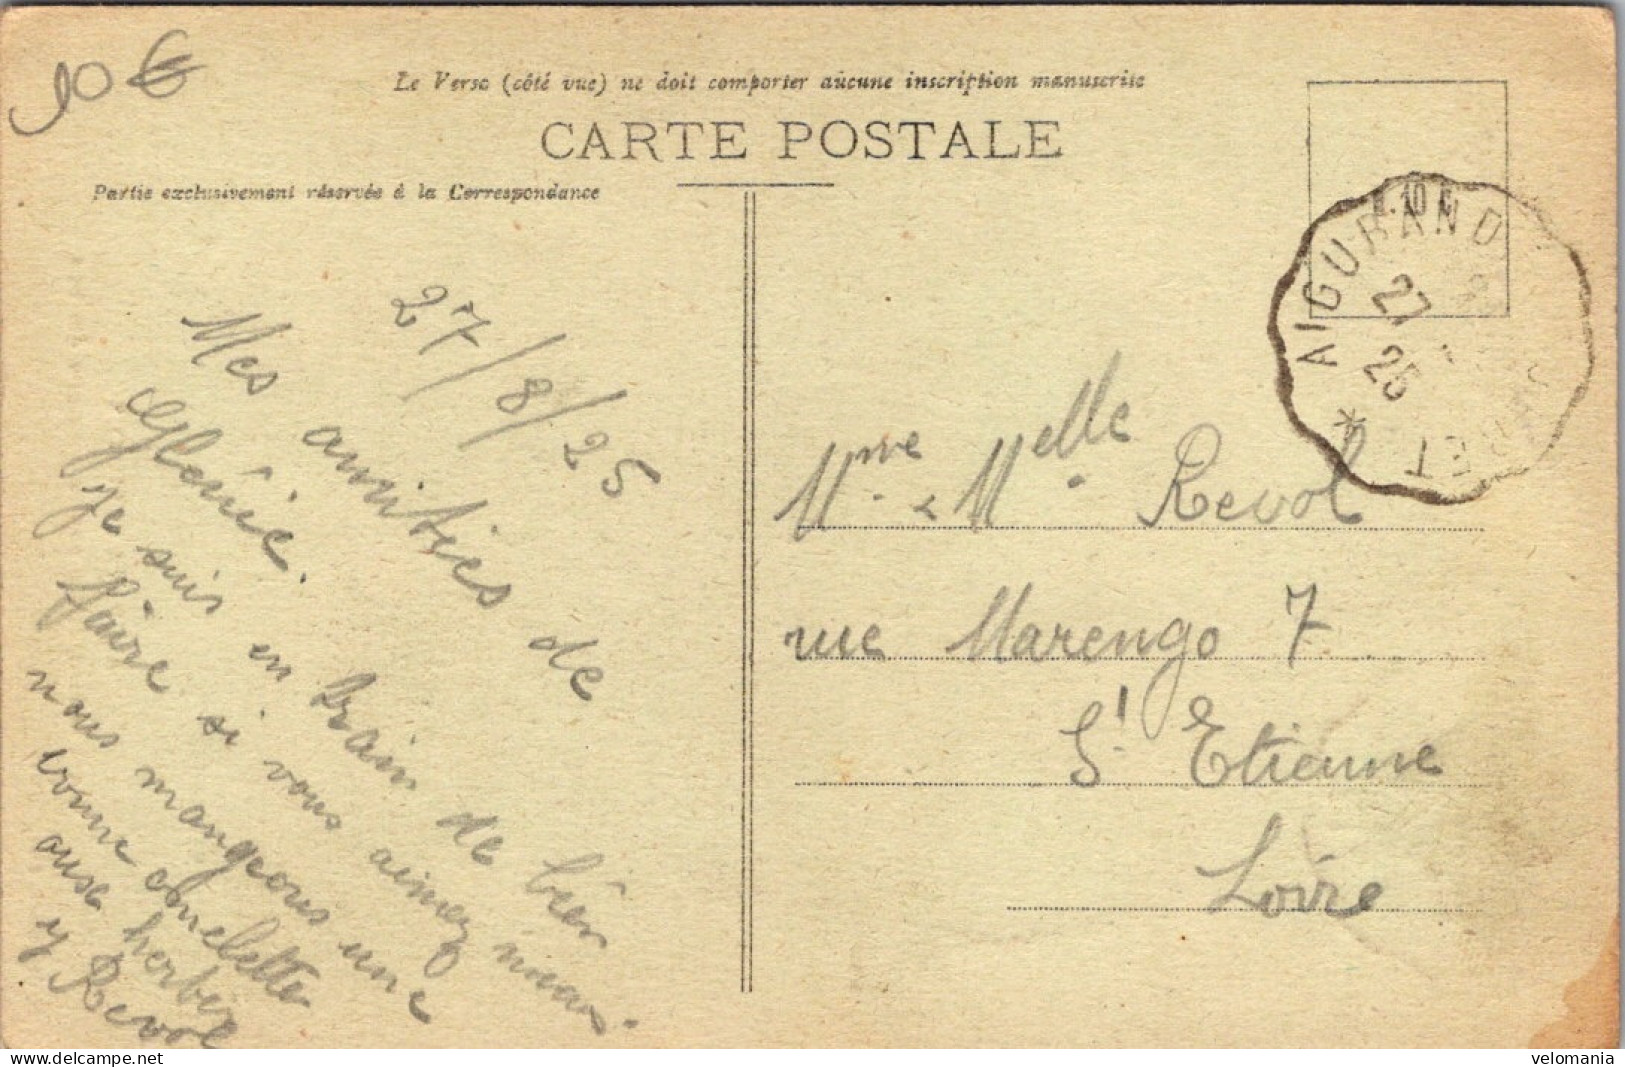 10 €
Le Verso (côté vue) ne doit comporter aucune inscription manuscrite
CARTE POSTALE
Partie exclusivement réservée à la Correspondance
AIGURANDE
27
25
27/8/25
Mes amitiés de
Glénie.
Je suis en train de
faire si vous aimez
nous mangeons une
bonne omelette
y Revol
Mme & Melle Revol
rue Marengo 7
St Etienne
Loire
www.delcampe.net
velomania